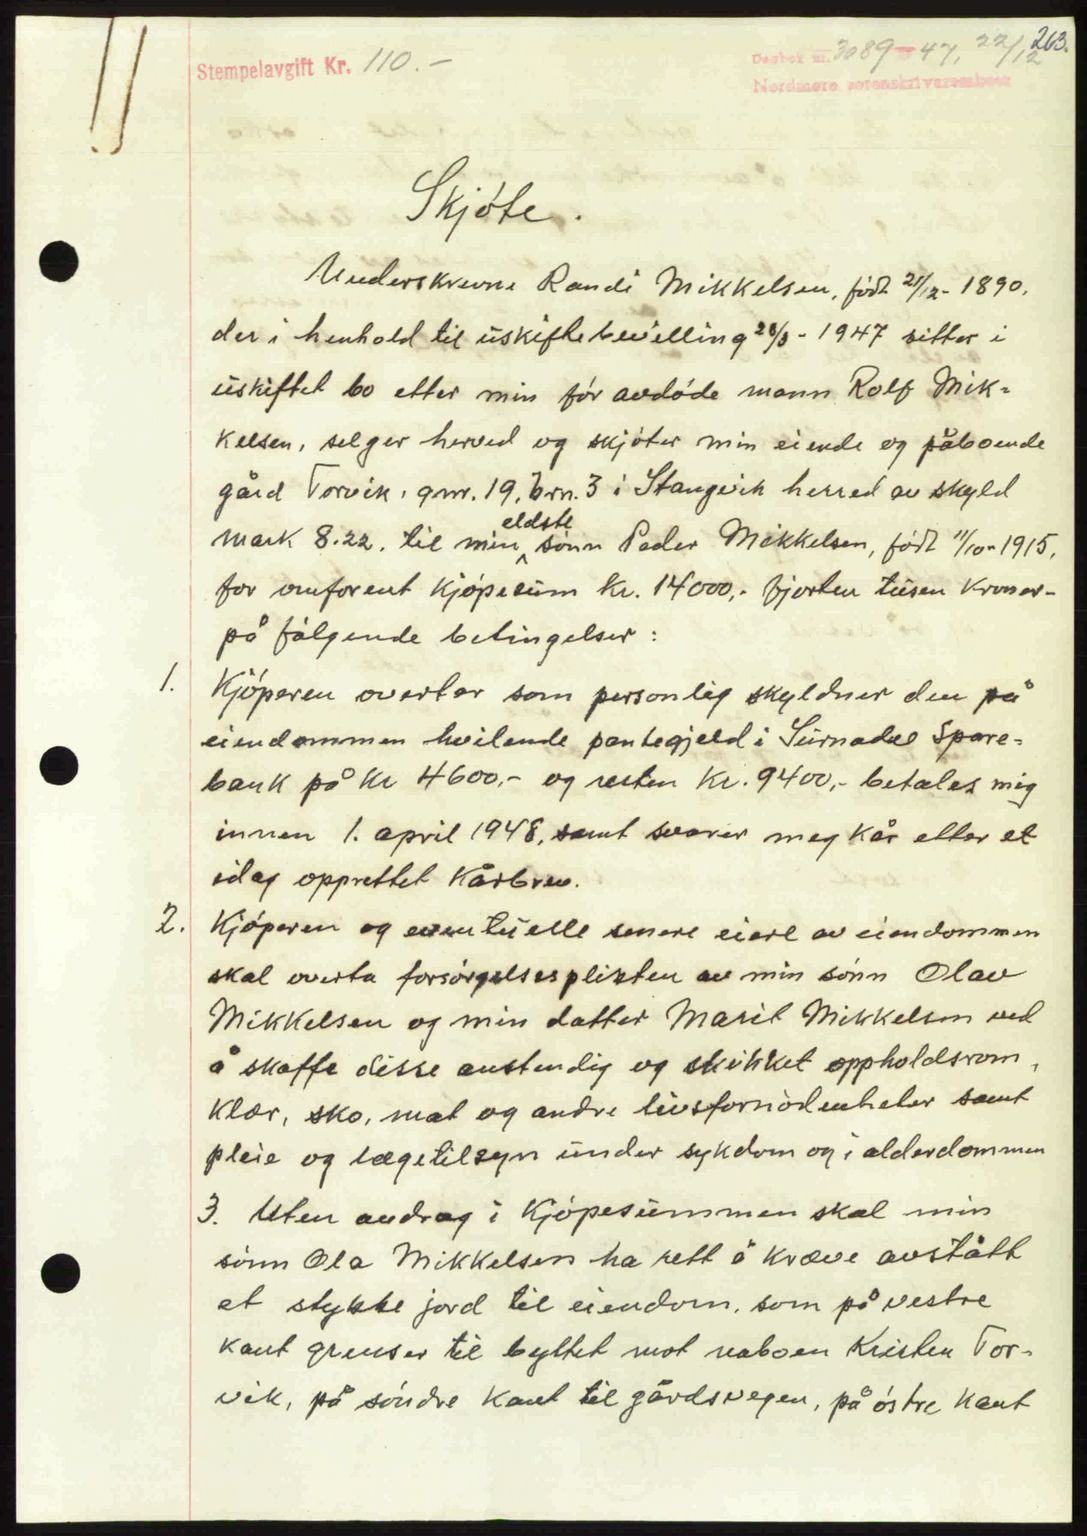 263.
Stempelavgift Kr. 110.-
Dagbok nr. 3089-47, 22/12
Nordmøre sorenskriverembete
Skjøte.
Underskrevne Randi Mikkelsen, født 21/12-1890,
der i henhold til uskiftebevilling 28/3-1947 sitter i
uskiftet bo etter min før avdøde mann Rolf Mik=
kelsen, selger herved og skjøter min eiende og påboende
gård Torvik, gnr. 19, brn. 3 i Stangvik herred av skyld
eldste
mark 8.22. til min sønn Peder Mikkelsen, født 11/10-1915,
for omforent kjøpesum kr. 14000,- fjorten tusen kroner-
på følgende betingelser:
1. Kjøperen overtar som personlig skyldner den på
eiendommen hvilende pantegjeld i Surnadal Spare=
bank på kr 4600,- og resten kr. 9400,- betales mig
innen 1. april 1948, samt svarer meg kår etter et
idag opprettet kårbrev.
2. Kjøperen og eventuelle senere eiere av eiendommen
skal overta forsørgelsesplikten av min sønn Olav
Mikkelsen og min datter Marit Mikkelsen ved
å skaffe disse anstendig og skikket oppholdsrom,
klær, sko, mat og andre livsfornødenheter samt
pleie og lægetilsyn under sykdom og i alderdommen
3. Uten avdrag i kjøpesummen skal min
sønn Ola Mikkelsen ha rett å kræve avstått
et stykke jord til eiendom, som på vestre
kant grenser til byttet mot naboen Kristen Tor-
vik, på søndre kant til gårdsvegen, på østre kant